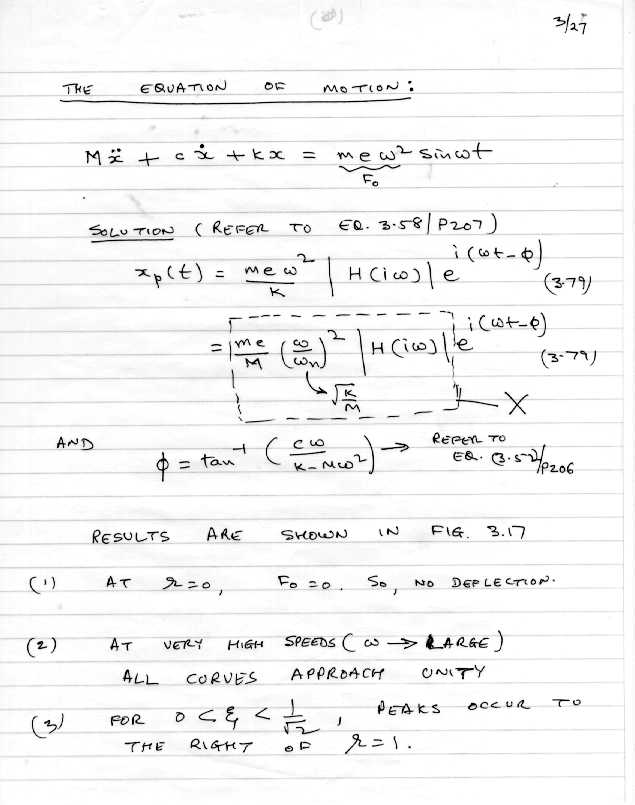 3/27
THE EQUATION OF MOTION:
Mẍ + cẋ + kx = meω² sinωt
F₀
SOLUTION (REFER TO EQ. 3.58/P207)
xₚ(t) = meω²/K |H(iω)| e^i(ωt-φ) (3.79)
= me/M (ω/ωₙ)² |H(iω)| e^i(ωt-φ) (3-79)
√K/M
X
AND φ = tan⁻¹ (cω/K-Mω²) → REFER TO EQ. (3.52)/P206
RESULTS ARE SHOWN IN FIG. 3.17
(1) AT r=0, F₀=0. So, NO DEFLECTION.
(2) AT VERY HIGH SPEEDS (ω → LARGE)
ALL CURVES APPROACH UNITY
(3) FOR 0 < ξ < 1/√2, PEAKS OCCUR TO
THE RIGHT OF r=1.